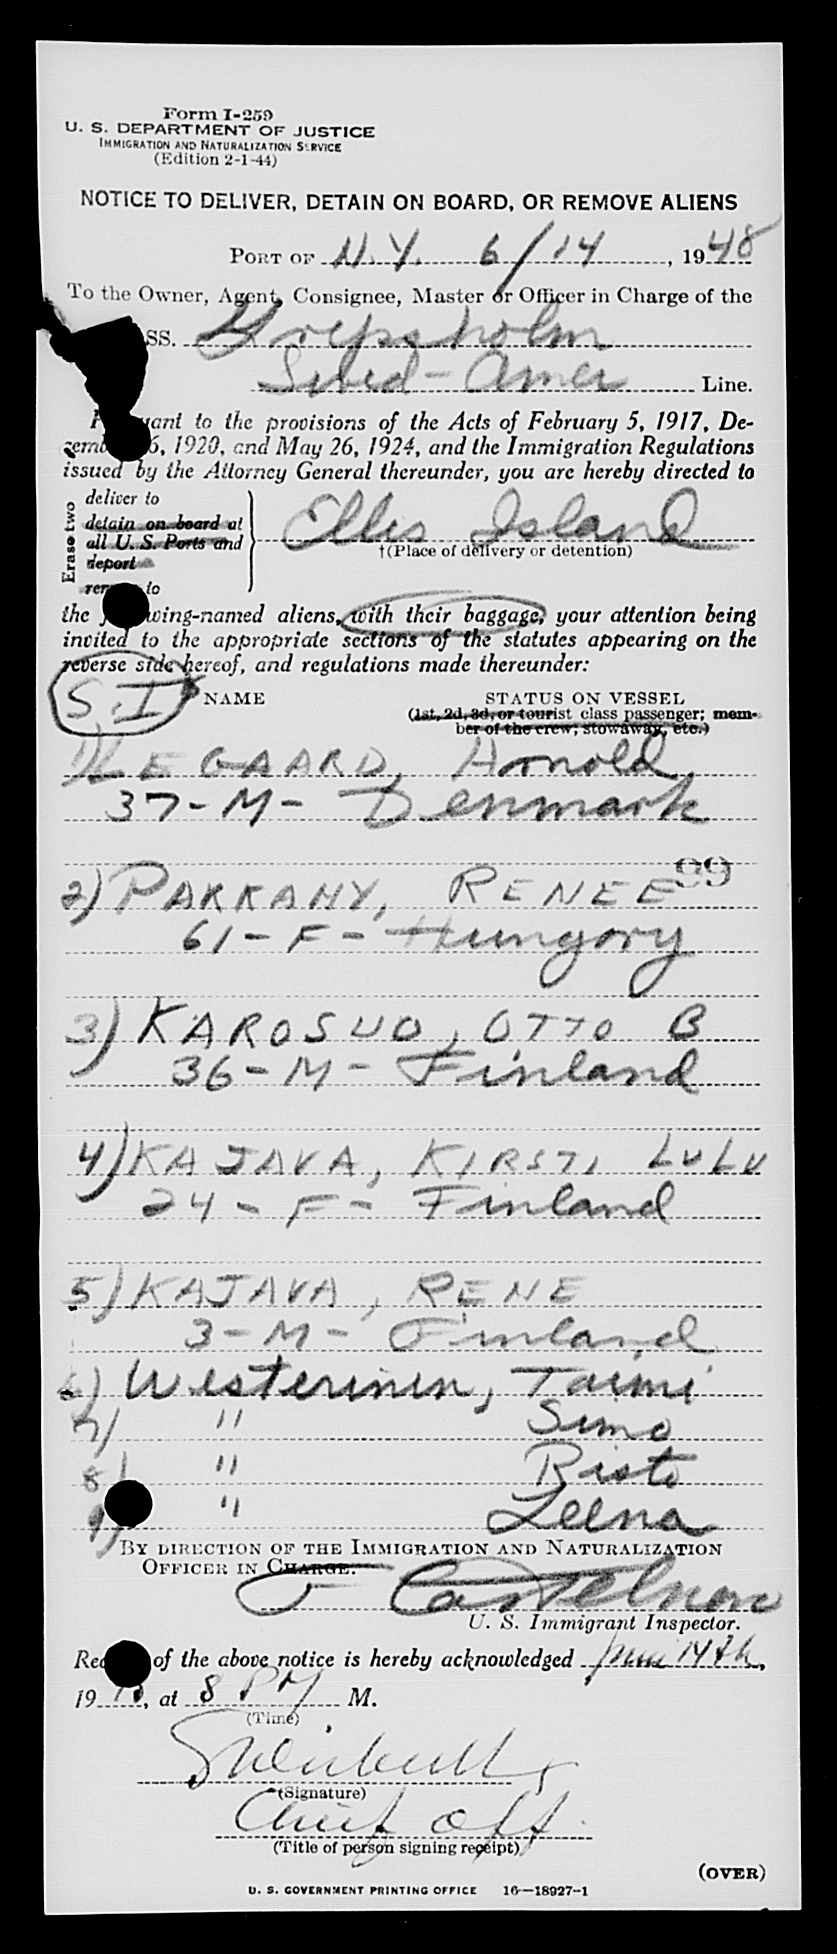 Form I-259
U. S. DEPARTMENT OF JUSTICE
IMMIGRATION AND NATURALIZATION SERVICE
(Edition 2-1-44)
NOTICE TO DELIVER, DETAIN ON BOARD, OR REMOVE ALIENS
PORT OF N.Y. 6/14, 1948
To the Owner, Agent, Consignee, Master or Officer in Charge of the
SS. Gripsholm
Swed-Amer Line.
to the provisions of the Acts of February 5, 1917, De-
6, 1920, and May 26, 1924, and the Immigration Regulations
issued by the Attorney General thereunder, you are hereby directed to
Erase two
deliver to
detain on board at
all U. S. Ports and
deport
to
Ellis Island
†(Place of delivery or detention)
the wing-named aliens, with their baggage, your attention being
invited to the appropriate sections of the statutes appearing on the
reverse side hereof, and regulations made thereunder:
S.I. NAME STATUS ON VESSEL
(1st, 2d, 3d, or tourist class passenger; mem-
ber of the crew; stowaway, etc.)
1) LEGAARD, Arnold
37-M- Denmark
99
2) PAKKANY, RENEE
61-F- Hungory
3) KAROSUO, OTTO B
36-M- Finland
4) KAJAVA, KIRSTI LULU
24-F- Finland
5) KAJAVA, RENE
3-M- Finland
6) Westerinin, Taimi
7) " Simo
8) " Risto
9) " Leena
BY DIRECTION OF THE IMMIGRATION AND NATURALIZATION
OFFICER IN CHARGE.
U. S. Immigrant Inspector.
of the above notice is hereby acknowledged June 14th,
19, at 8 PM M.
(Time)
(Signature)
Chief Off.
(Title of person signing receipt)
(OVER)
U. S. GOVERNMENT PRINTING OFFICE 16—18927-1